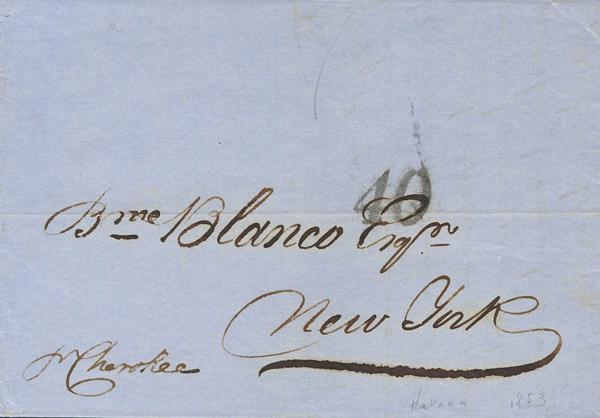 40
Bme Blanco Esqr
New York
pr Cherokee
Havana 1853